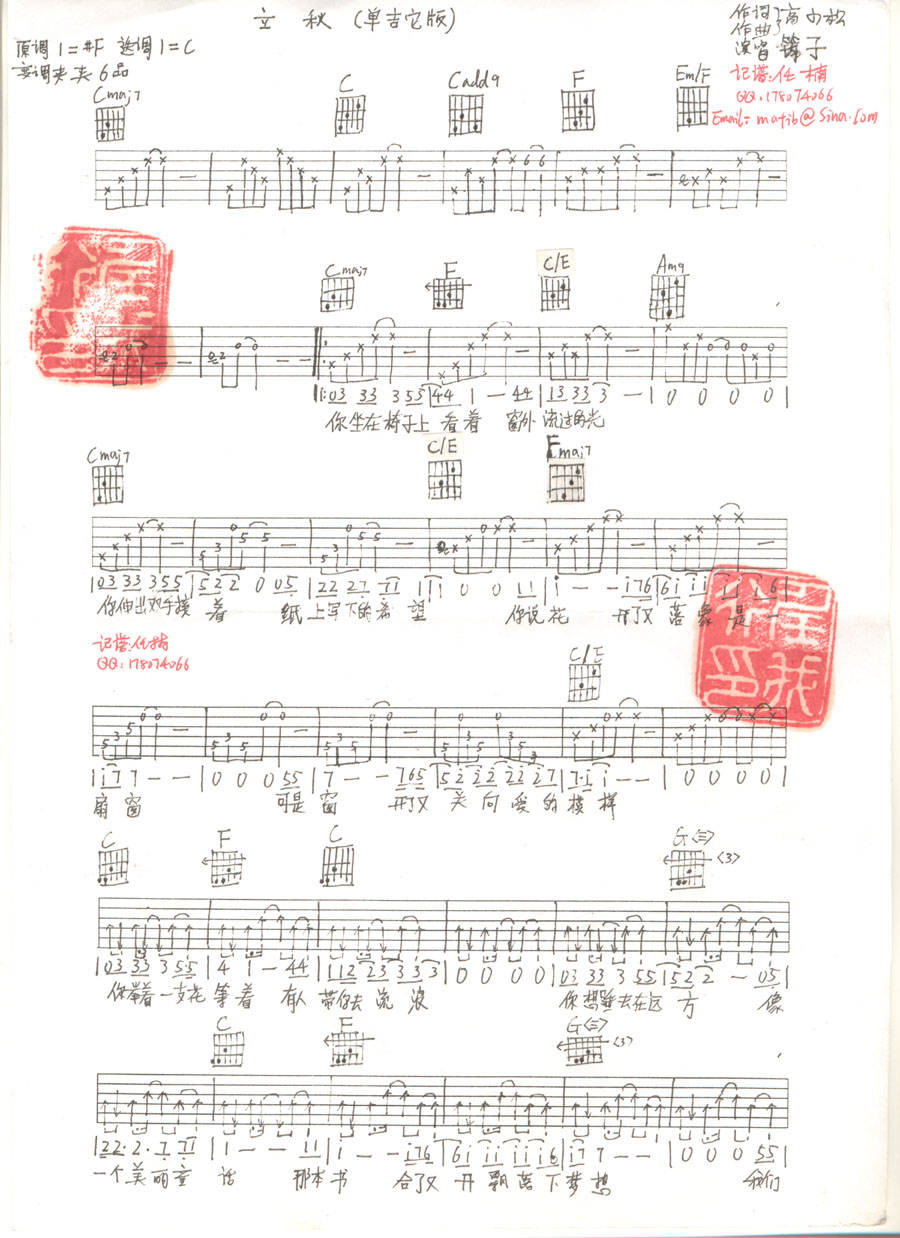 立 秋 (单吉它版)
作词 高小松
作曲
演唱 筠子
原调 1=#F 选调 1=C
变调夹夹6品
记谱:任楠
QQ:178074066
Email: matib@sina.com
Cmaj7 C Cadd9 F Em/F
Cmaj7 F C/E Am9
03 33 3 55 | 44 1 — 44 | 13 33 3 — | 0 0 0 0 |
你坐在椅子上 看着 窗外 流过的光
Cmaj7 C/E Fmaj7
03 33 3 55 | 5 2 2 0 05 | 22 27 11 1 | 1 0 0 11 | i — — i76 | 6i ii ii i6 |
你伸出双手摸 着 纸 上写下的希 望 你说花 开了又 落象是一
记谱:任楠
QQ:178074066
C/E
i7 7 — — | 0 0 0 55 | 7 — — 765 | 5 2 2 2 2 2 i7 | 7·i i — — | 0 0 0 0 |
扇窗 可是窗 开了又 关 向 爱 的 模 样
C F C G <3>
03 33 3 55 | 4 1 — 44 | 112 23 3 3 3 | 0 0 0 0 | 03 33 3 55 | 522 — 05 |
你举着一支花 等着 有人 带你去 流 浪 你想睡去在远 方 像
C F G <3>
22· 2· 7 71 | 1 — — 11 | i — — i76 | 6i ii ii i6 | i7 7 — — | 0 0 0 55 |
一个美丽童 话 那本书 合了又 开 飘落 下梦想 我们